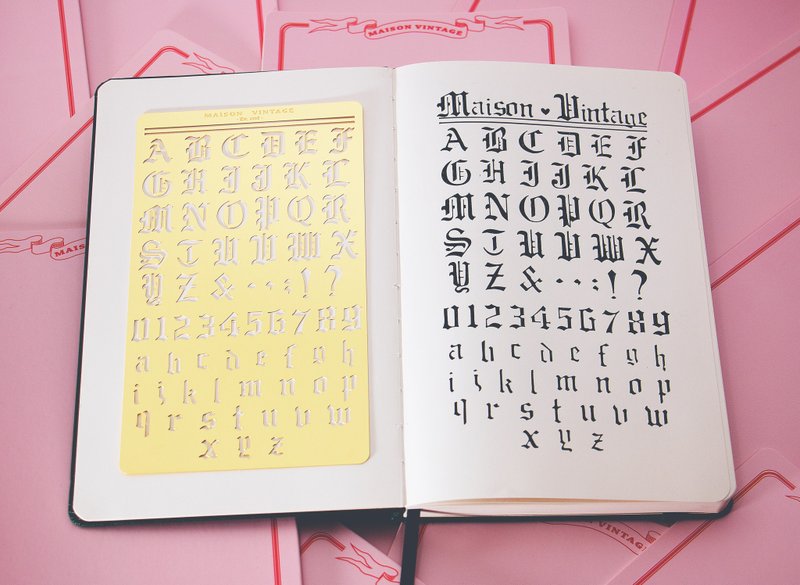 MAISON VINTAGE
MAISON VINTAGE
A B C D E F
G H I J K L
M N O P Q R
S T U V W X
Y Z & · , : ! ?
0 1 2 3 4 5 6 7 8 9
a b c d e f g h
i j k l m n o p
q r s t u v w
x y z
Maison ♥ Vintage
A B C D E F
G H I J K L
M N O P Q R
S T U V W X
Y Z & · , : ! ?
0 1 2 3 4 5 6 7 8 9
a b c d e f g h
i j k l m n o p
q r s t u v w
x y z